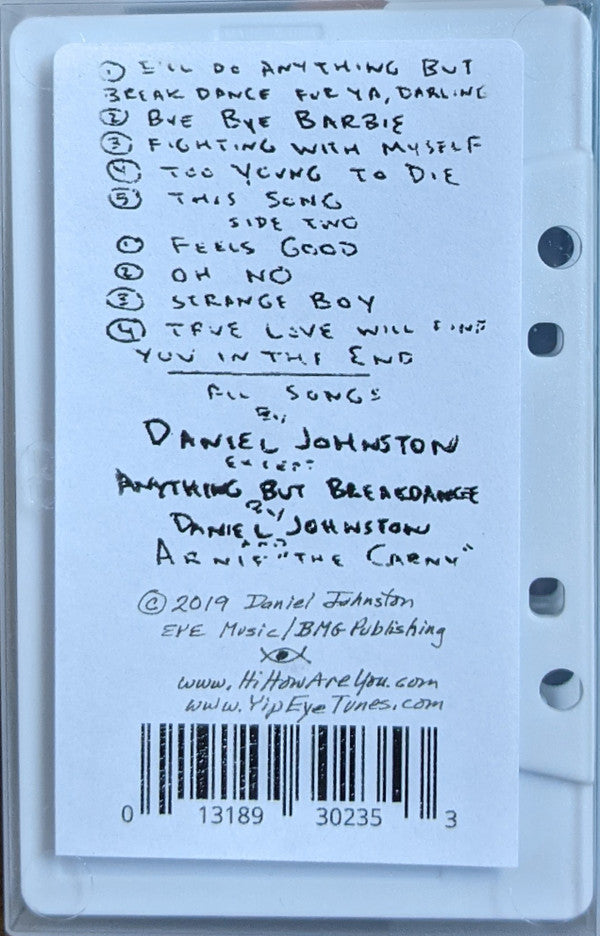 ① I'LL DO ANYTHING BUT
BREAK DANCE FUR YA, DARLING
② BYE BYE BARBIE
③ FIGHTING WITH MYSELF
④ TOO YOUNG TO DIE
⑤ THIS SONG
SIDE TWO
① FEELS GOOD
② OH NO
③ STRANGE BOY
④ TRUE LOVE WILL FIND
YOU IN THE END
ALL SONGS
BY
DANIEL JOHNSTON
EXCEPT
ANYTHING BUT BREAKDANCE
BY
DANIEL JOHNSTON
AND
ARNIE "THE CARNY"
© 2019 Daniel Johnston
EYE Music/BMG Publishing
www.HiHowAreYou.com
www.YipEyeTunes.com
0 13189 30235 3